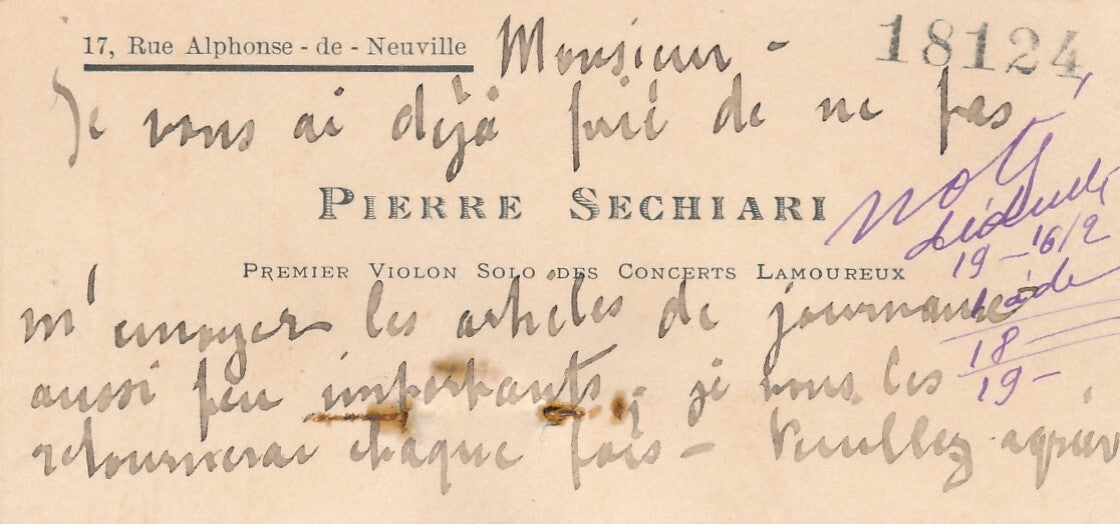 17, Rue Alphonse - de - Neuville
Monsieur -
18124
Je vous ai déjà prié de ne pas
PIERRE SECHIARI
PREMIER VIOLON SOLO DES CONCERTS LAMOUREUX
m'envoyer les articles de journaux
aussi peu importants, je vous les
retournerai chaque fois - Veuillez agréer
noté
19 - 16/2
18 -
19 -